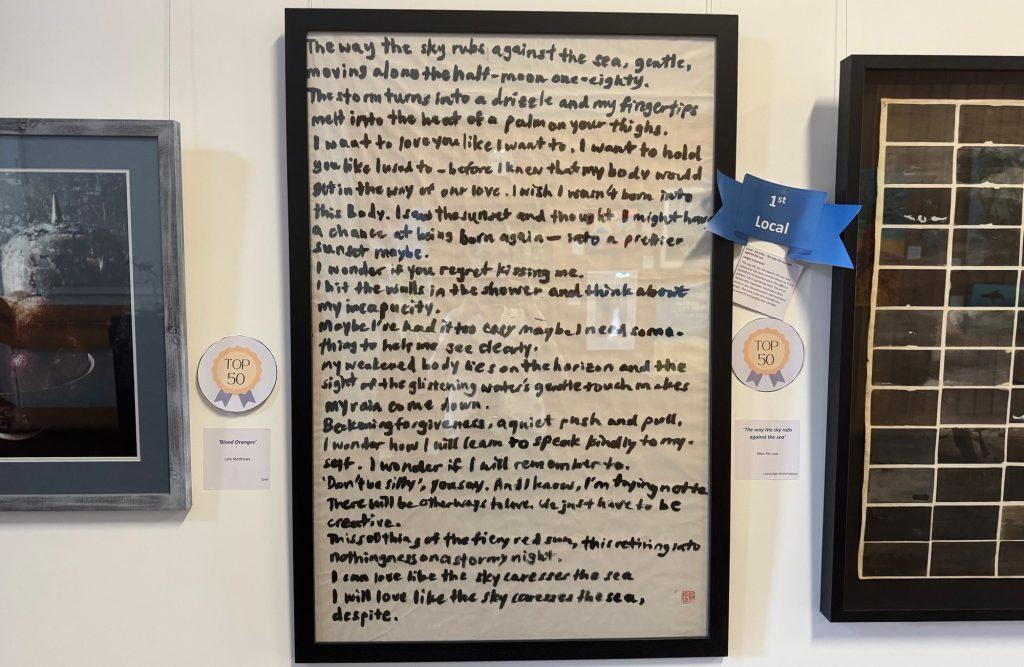 The way the sky rubs against the sea, gentle,
moving along the half-moon one-eighty.
The storm turns into a drizzle and my fingertips
melt into the heat of a palm on your thighs.
I want to love you like I want to. I want to hold
you like I used to - before I knew that my body would
get in the way of our love. I wish I wasn't born into
this body. I saw the sunset and thought I might have
a chance at being born again - into a prettier
sunset maybe.
I wonder if you regret kissing me.
I hit the walls in the shower and think about
my incapacity.
Maybe I've had it too easy maybe I need some-
thing to help me see clearly.
My weakened body lies on the horizon and the
sight of the glistening water's gentle touch makes
my rain come down.
Beckoning forgiveness, a quiet push and pull.
I wonder how I will learn to speak kindly to my-
self. I wonder if I will remember to.
'Don't be silly', you say. And I know, I'm trying not to
There will be other ways to love. We just have to be
creative.
This setting of the fiery red sun, this retiring into
nothingness on a stormy night.
I can love like the sky caresses the sea
I will love like the sky caresses the sea,
despite.
1st
Local
TOP
50
'Blood Oranges'
Julie Matthews
TOP
50
'The way the sky rubs
against the sea'